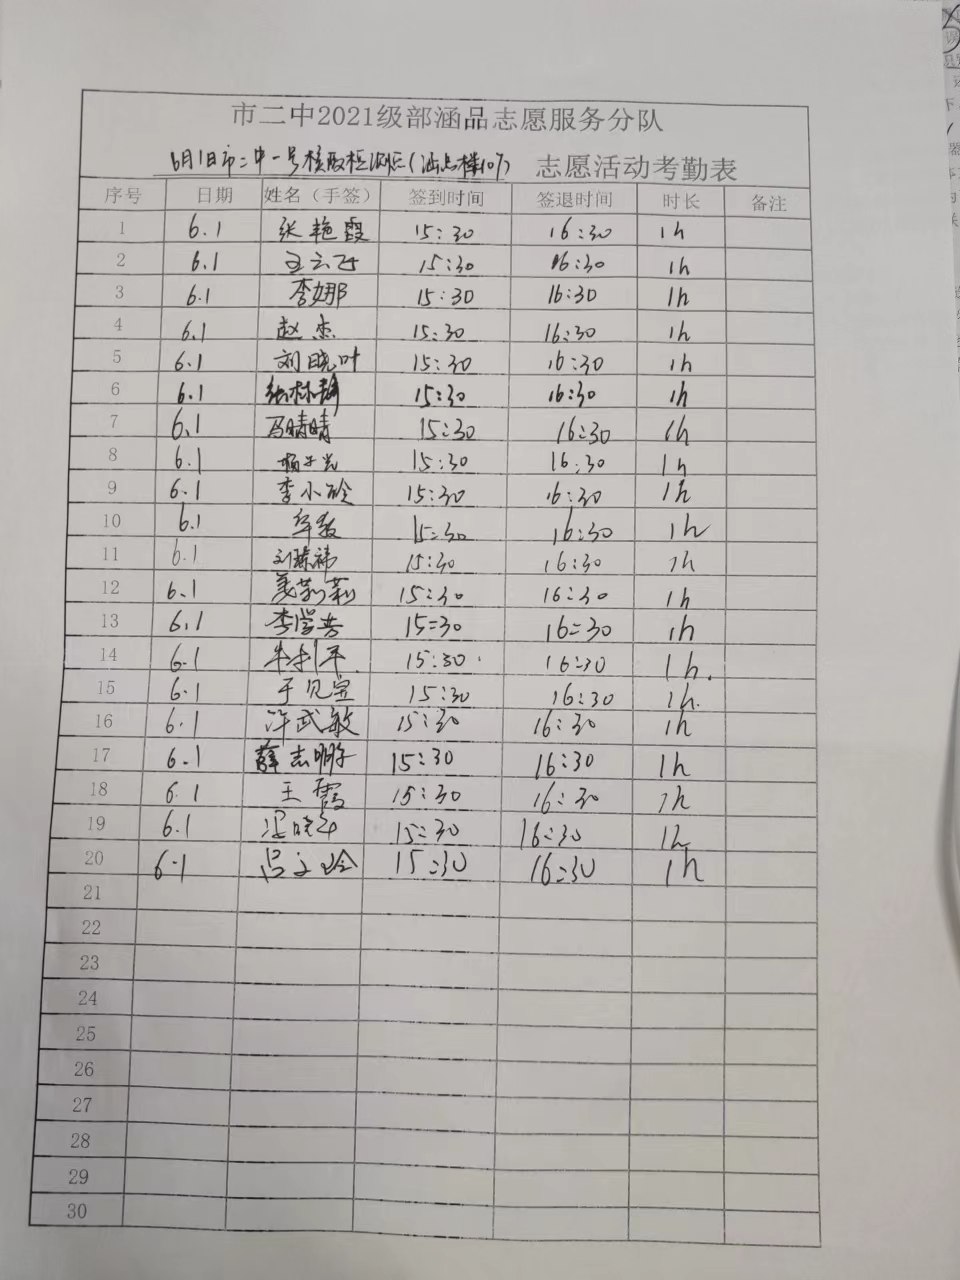 市二中2021级部涵品志愿服务分队
6月1日市二中一号核酸检测区(涵品楼107) 志愿活动考勤表
序号 日期 姓名（手签） 签到时间 签退时间 时长 备注
1 6.1 张艳霞 15:30 16:30 1h
2 6.1 15:30 16:30 1h
3 6.1 李娜 15:30 16:30 1h
4 6.1 赵杰 15:30 16:30 1h
5 6.1 刘晓叶 15:30 16:30 1h
6 6.1 张林静 15:30 16:30 1h
7 6.1 冯晴晴 15:30 16:30 1h
8 6.1 15:30 16:30 1h
9 6.1 李小玲 15:30 16:30 1h
10 6.1 15:30 16:30 1h
11 6.1 15:30 16:30 1h
12 6.1 姜莉莉 15:30 16:30 1h
13 6.1 李学芳 15:30 16:30 1h
14 6.1 15:30 16:30 1h.
15 6.1 于见宝 15:30 16:30 1h.
16 6.1 许武敏 15:30 16:30 1h
17 6.1 薛志明 15:30 16:30 1h
18 6.1 王霞 15:30 16:30 1h
19 6.1 15:30 16:30 1h
20 6.1 吕文玲 15:30 16:30 1h
21
22
23
24
25
26
27
28
29
30